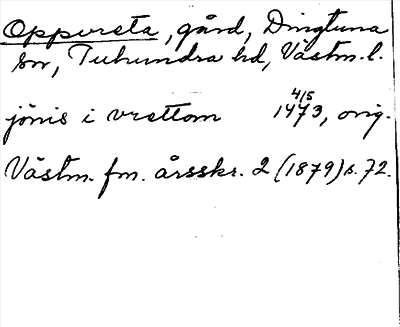 Oppursta, gård, Dingtuna
sn, Tuhundra hd, Västm. l.
4/5
jönis i vrettom 1473, orig.
Västm. fm. årsskr. 2 (1879) s. 72.